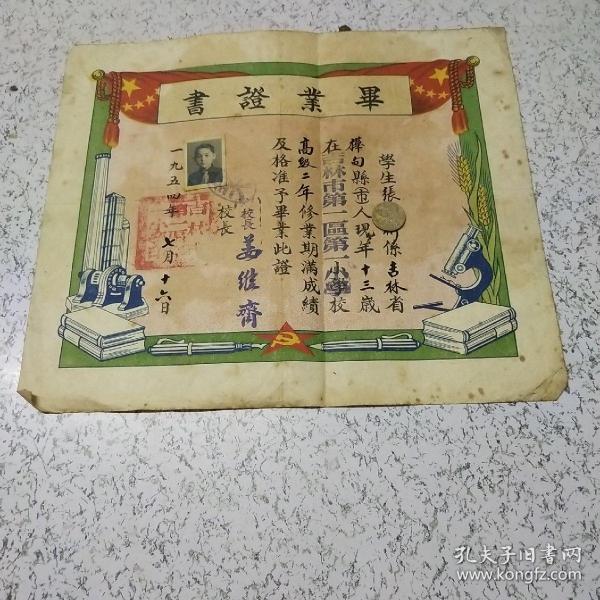 畢業證書
學生張 係吉林省
樺甸縣市人現年十三歲
在吉林市第一區第一小學校
高級二年修業期滿成績
及格准予畢業此證
校長
校長 姜維齊
一九五四年七月十六日
孔夫子旧书网
www.kongfz.com